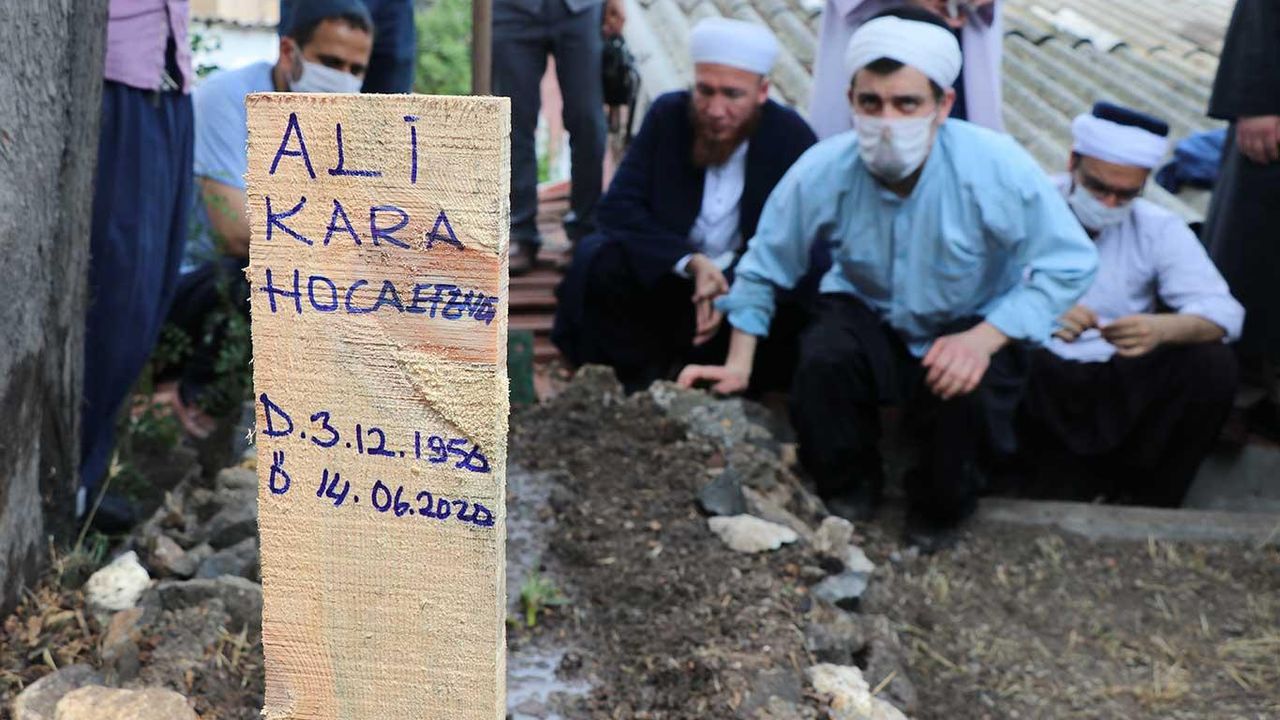 ALİ
KARA
HOCA
D.3.12.1956
Ö 14.06.2020